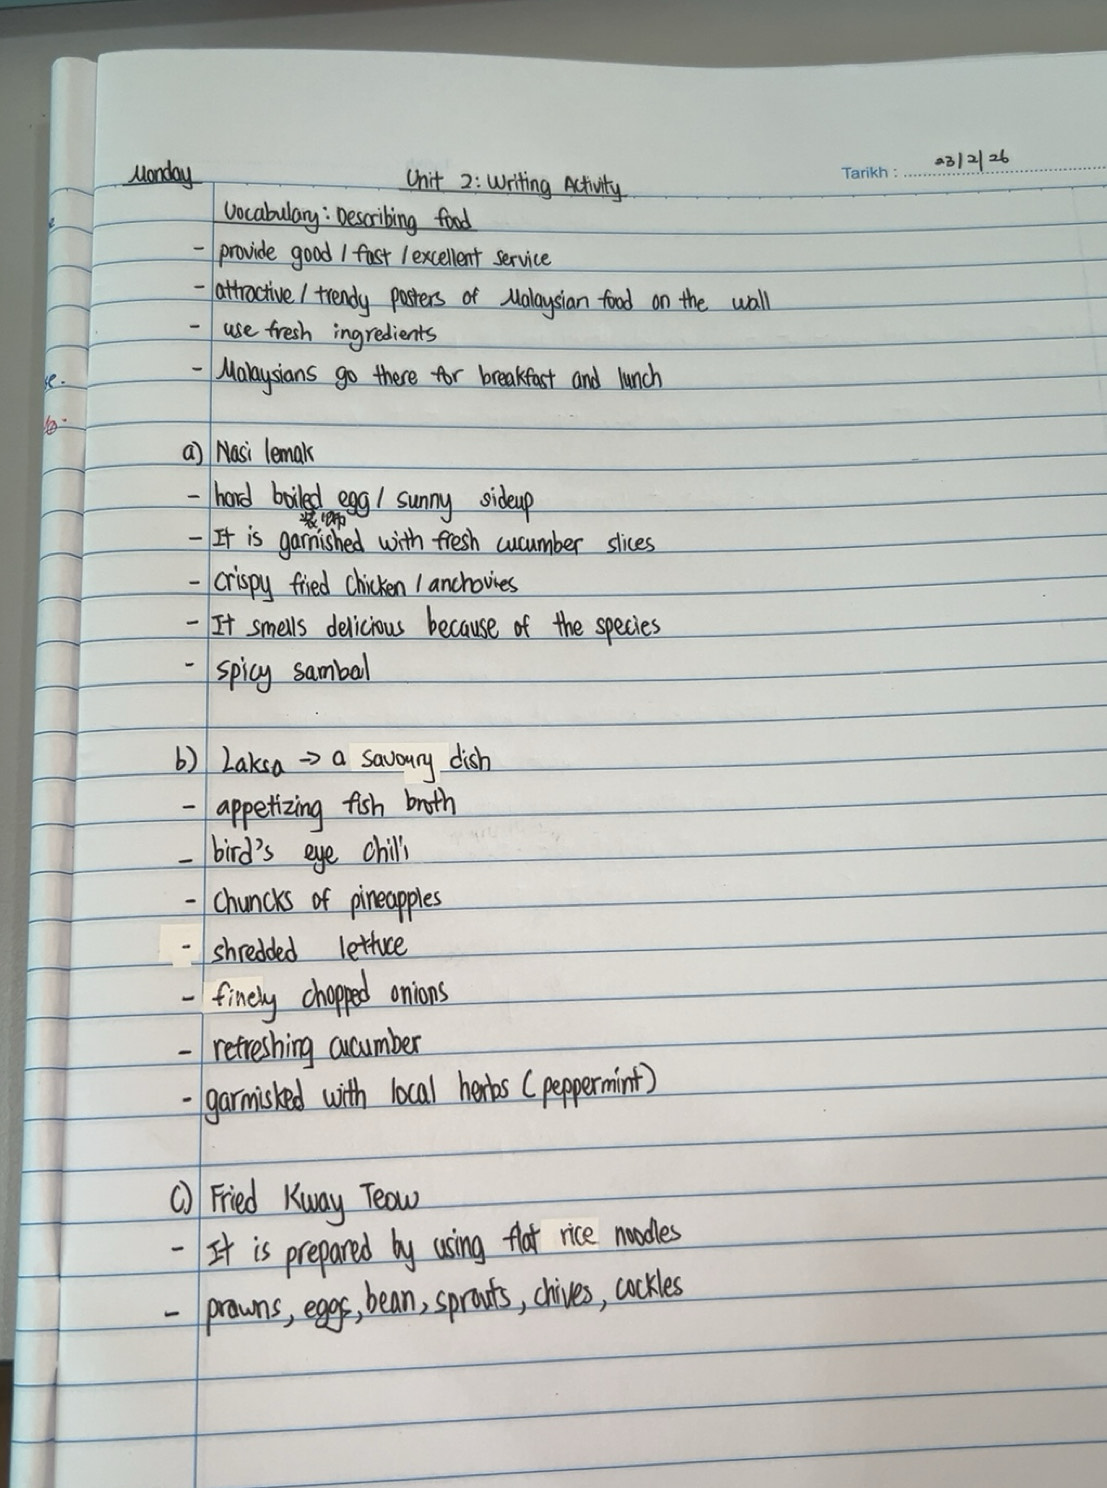 Monday
Unit 2: Writing Activity
Tarikh : 23/2/26
Vocabulary: Describing food
- provide good / fast / excellent service
- attractive / trendy posters of Malaysian food on the wall
- use fresh ingredients
- Malaysians go there for breakfast and lunch
a) Nasi lemak
- hard boiled egg / sunny sideup
装饰
- It is garnished with fresh cucumber slices
- Crispy fried chicken / anchovies
- It smells delicious because of the species
- spicy sambal
b) Laksa → a savoury dish
- appetizing fish broth
- bird's eye chili
- Chuncks of pineapples
- shredded lettuce
- finely chopped onions
- refreshing cucumber
- garmisked with local herbs (peppermint)
c) Fried Kway Teow
- It is prepared by using flat rice noodles
- prawns, eggs, bean, sprouts, chives, cockles